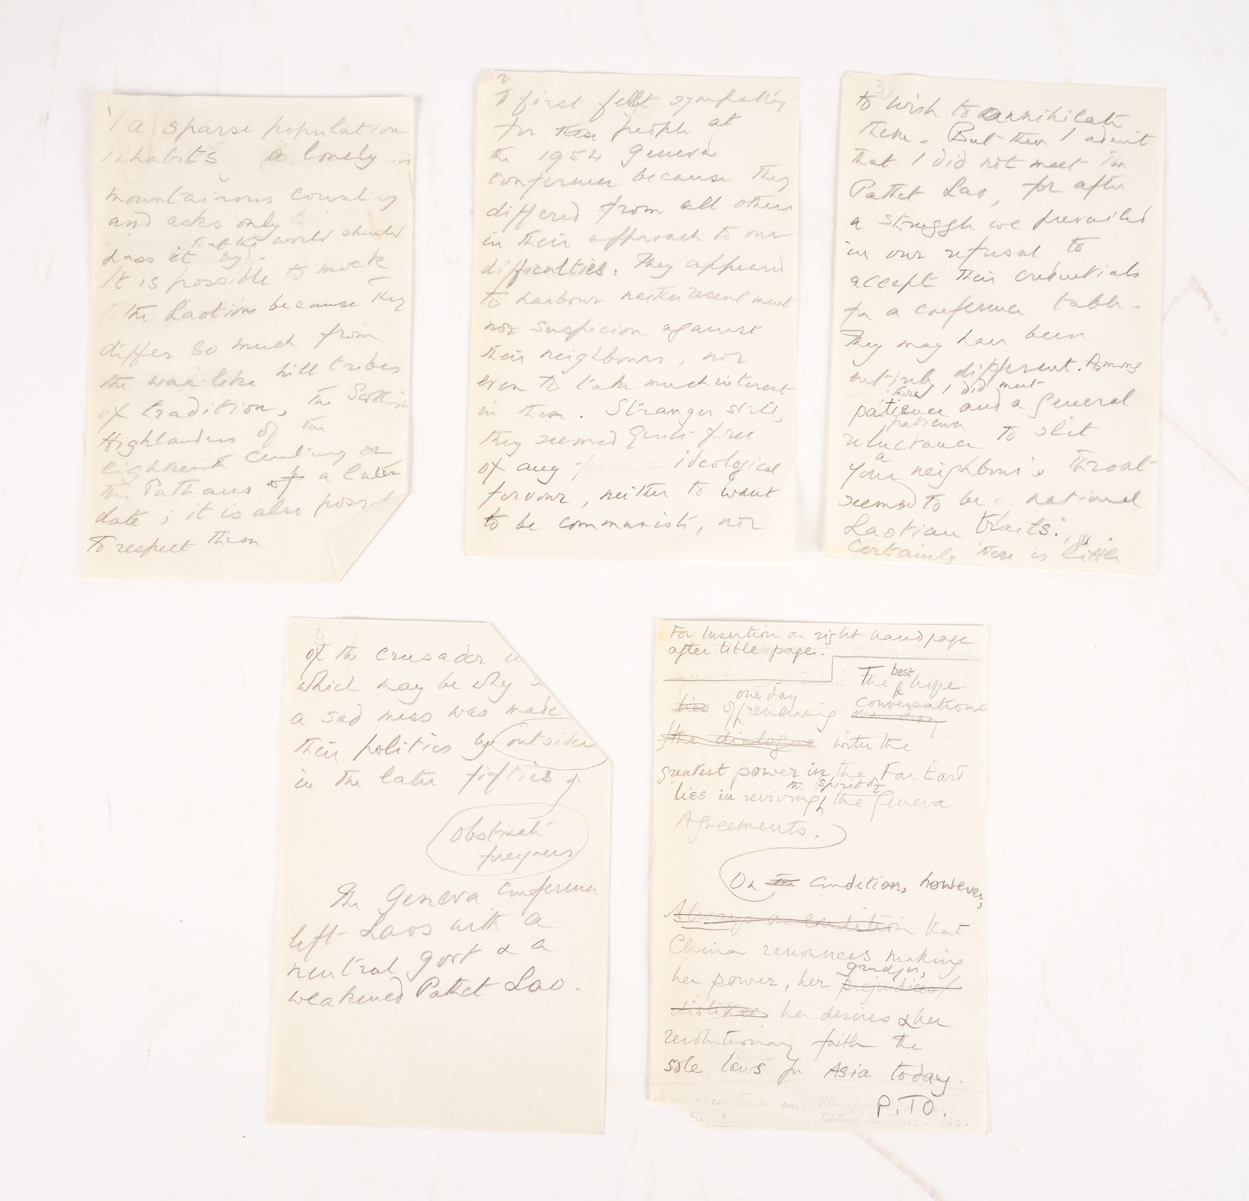 1/ a sparse population
inhabits a lonely
mountainous country
and asks only
that the world should
pass it by.
It is possible to mock
the Laotians because they
differ so much from
the war-like hill tribes
of tradition, the Scottish
Highlanders of the
eighteenth century or
the Pathans of a later
date ; it is also possi
to respect them
2
I first felt sympathy
for people at
the 1954 Geneva
conference because they
differed from all others
in their approach to our
difficulties. They appeared
to harbour neither resentment
nor suspicion against
their neighbours, nor
even to take much interest
in them. Stranger still,
they seemed quite free
of any ideological
fervour, neither to want
to be communists, nor
3
to wish to annihilate
them. But then I admit
that I did not meet the
Pathet Lao, for after
a struggle we prevailed
in our refusal to
accept their credentials
for a conference table.
They may have been
entirely different. Among
those I did meet
patience and a general
patience
reluctance to slit
a
your neighbour's throat
seemed to be national
Laotian traits.
Certainly there is little
4
of the crusader
which may be why
a sad mess was made
their politics by outsiders
in the later fifties
obstinate
foreigners
The Geneva Conference
left Laos with a
neutral govt & a
weakened Pathet Lao.
For Insertion on right hand page
after title page.
The best hope
lies of one day renewing conversations
the dialogue with the
greatest power in the Far East
lies in reviving the spirit of the Geneva
Agreements.
On the condition, however,
Always on condition that
China renounces making
her power, her grudges, prejudices/
dislikes her desires & her
revolutionary faith the
sole laws for Asia today.
P.T.O.